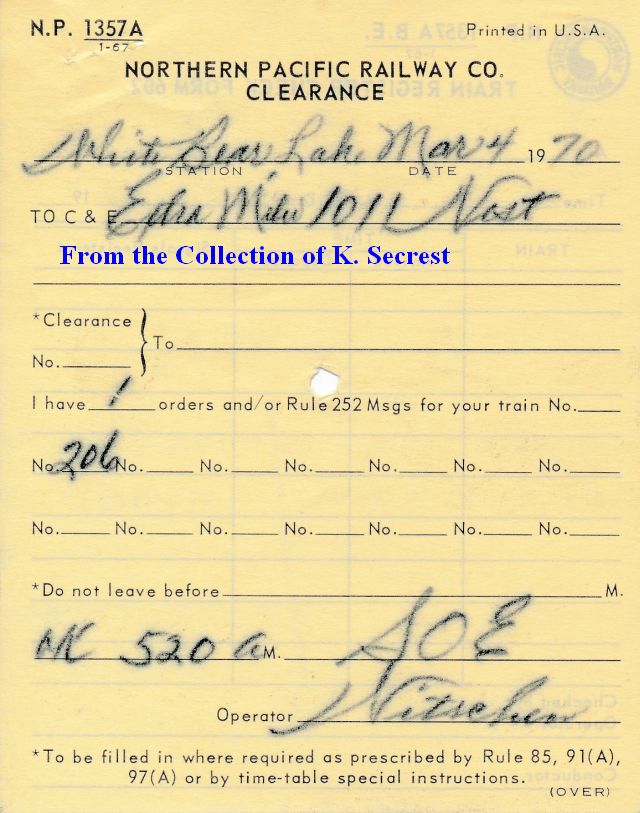 N.P. 1357A Printed in U.S.A.
1-67
NORTHERN PACIFIC RAILWAY CO.
CLEARANCE
White Bear Lake Mar 4 1970
STATION DATE
TO C & E Extra 1011
From the Collection of K. Secrest
*Clearance
No. To
I have 1 orders and/or Rule 252 Msgs for your train No.
No. 206 No. No. No. No. No. No.
No. No. No. No. No. No. No.
*Do not leave before M.
520 A M. SOE
Operator
*To be filled in where required as prescribed by Rule 85, 91(A),
97(A) or by time-table special instructions.
(OVER)